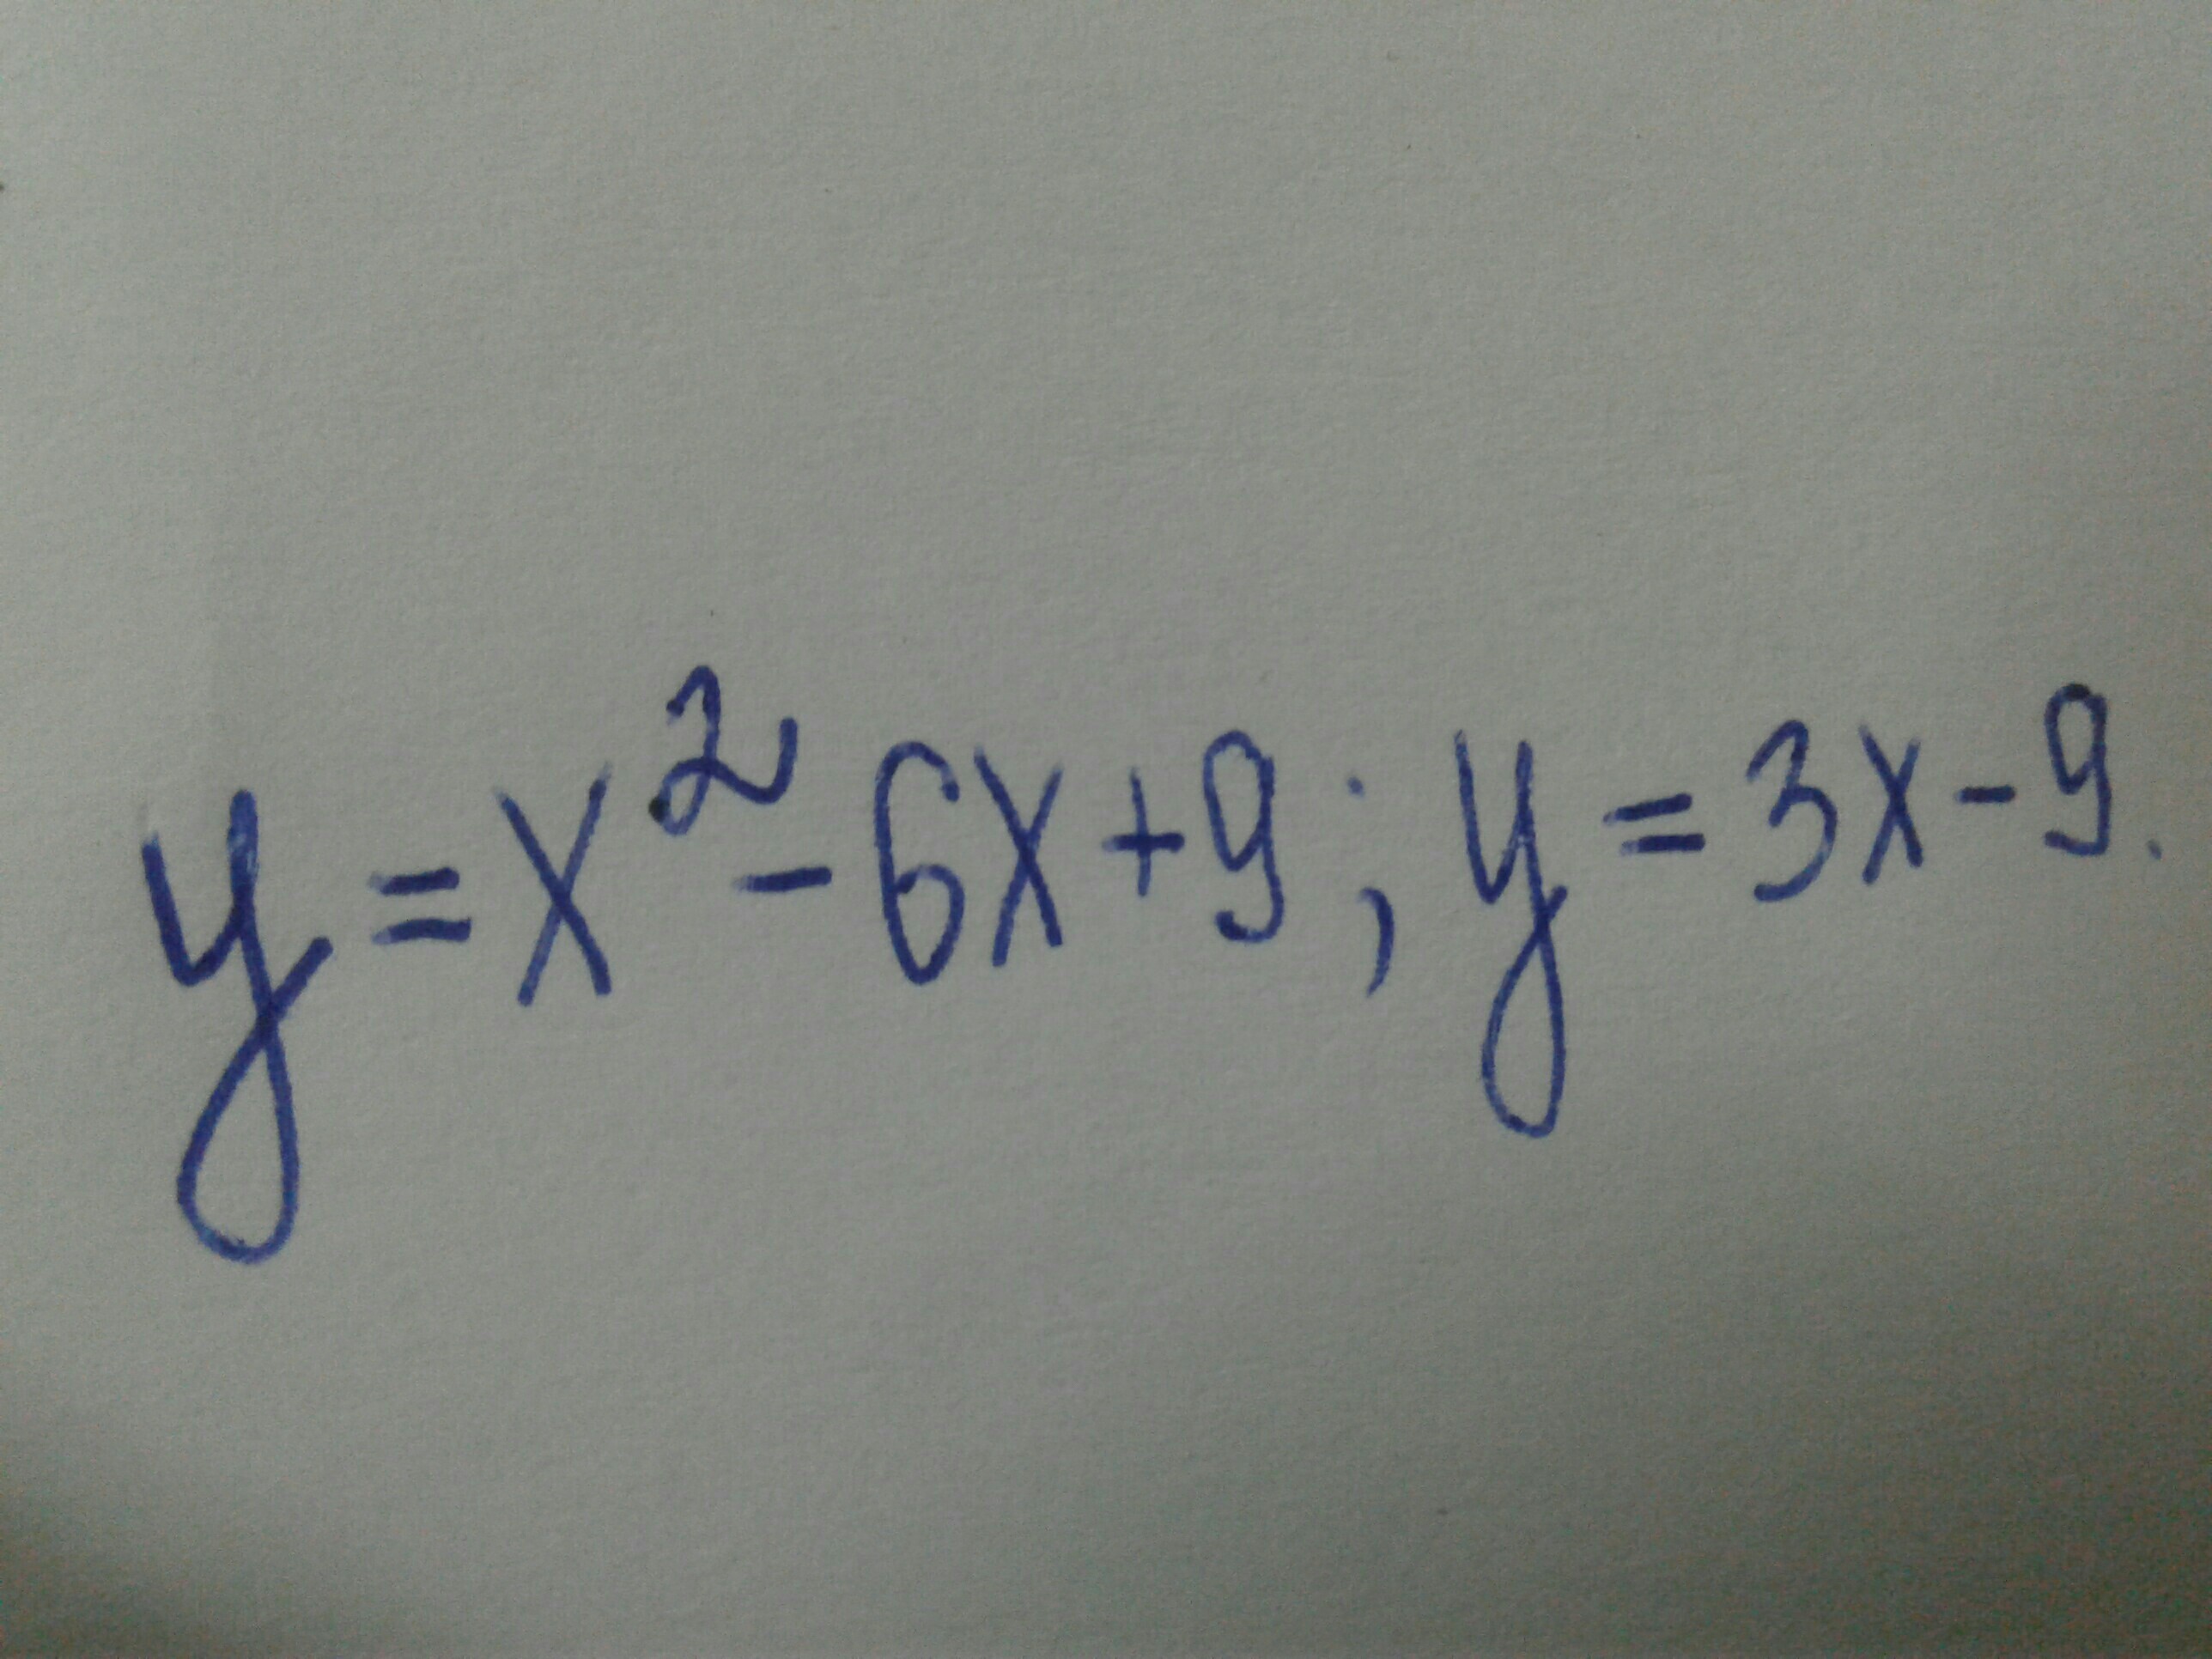 y = x² - 6x + 9 ; y = 3x - 9.